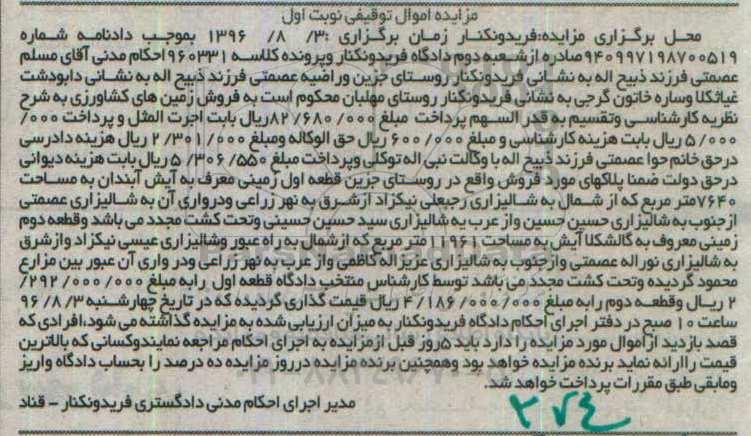 مزایده اموال توقیفی نوبت اول
محل برگزاری مزایده:فریدونکنار زمان برگزاری :۳/ ۸/ ۱۳۹۶ بموجب دادنامه شماره
۹۴۰۹۹۷۱۹۸۷۰۰۵۱۹صادره ازشعبه دوم دادگاه فریدونکنار وپرونده کلاسه ۹۶۰۳۳۱احکام مدنی آقای مسلم
عصمتی فرزند ذبیح اله به نشانی فریدونکنار روستای جزین وراضیه عصمتی فرزند ذبیح اله به نشانی دابودشت
غیاثکلا وساره خاتون گرجی به نشانی فریدونکنار روستای مهلبان محکوم است به فروش زمین های کشاورزی به شرح
نظریه کارشناسی وتقسیم به قدر السهم پرداخت مبلغ ۸۲/۶۸۰/۰۰۰ریال بابت اجرت المثل و پرداخت ۰۰۰/
۵/۰۰۰ ریال بابت هزینه کارشناسی و مبلغ ۶۰۰/۰۰۰ ریال حق الوکاله ومبلغ ۲/۳۰۱/۰۰۰ ریال هزینه دادرسی
درحق خانم حوا عصمتی فرزند ذبیح اله با وکالت نبی اله توکلی وپرداخت مبلغ ۵/۳۰۶/۵۵۰ ریال بابت هزینه دیوانی
درحق دولت ضمنا پلاکهای مورد فروش واقع در روستای جزین قطعه اول زمینی معرف به آیش آبندان به مساحت
۷۶۴۰متر مربع که از شمال به شالیزاری رجبعلی نیکزاد ازشرق به نهر زراعی ودرواری آن به شالیزاری عصمتی
ازجنوب به شالیزاری حسین حسین واز غرب به شالیزاری سید حسین حسینی وتحت کشت مجدد می باشد وقطعه دوم
زمینی معروف به گالشکلا آیش به مساحت ۱۱۹۶۱متر مربع که ازشمال به راه عبور وشالیزاری عیسی نیکزاد وازشرق
به شالیزاری نور اله عصمتی وازجنوب به شالیزاری عزیز اله کاظمی واز غرب به نهر زراعی ودر واری آن عبور بین مزارع
محمود گردیده وتحت کشت مجدد می باشد توسط کارشناس منتخب دادگاه قطعه اول رابه مبلغ ۲۹۲/۰۰۰/۰۰۰/
۲ ریال وقطعه دوم رابه مبلغ ۴/۱۸۶/۰۰۰/۰۰۰ ریال قیمت گذاری گردیده که در تاریخ چهارشنبه ۹۶/۸/۳
ساعت ۱۰ صبح در دفتر اجرای احکام دادگاه فریدونکنار به میزان ارزیابی شده به مزایده گذاشته می شود،افرادی که
قصد بازدید ازاموال مورد مزایده را دارد باید ۵روز قبل ازمزایده به اجرای احکام مراجعه نمایندوکسانی که بالاترین
قیمت راارائه نماید برنده مزایده خواهد بود وهمچنین برنده مزایده درروز مزایده ده درصد را بحساب دادگاه واریز
ومابقی طبق مقررات پرداخت خواهد شد.
مدیر اجرای احکام مدنی دادگستری فریدونکنار – قناد
۳۷۴